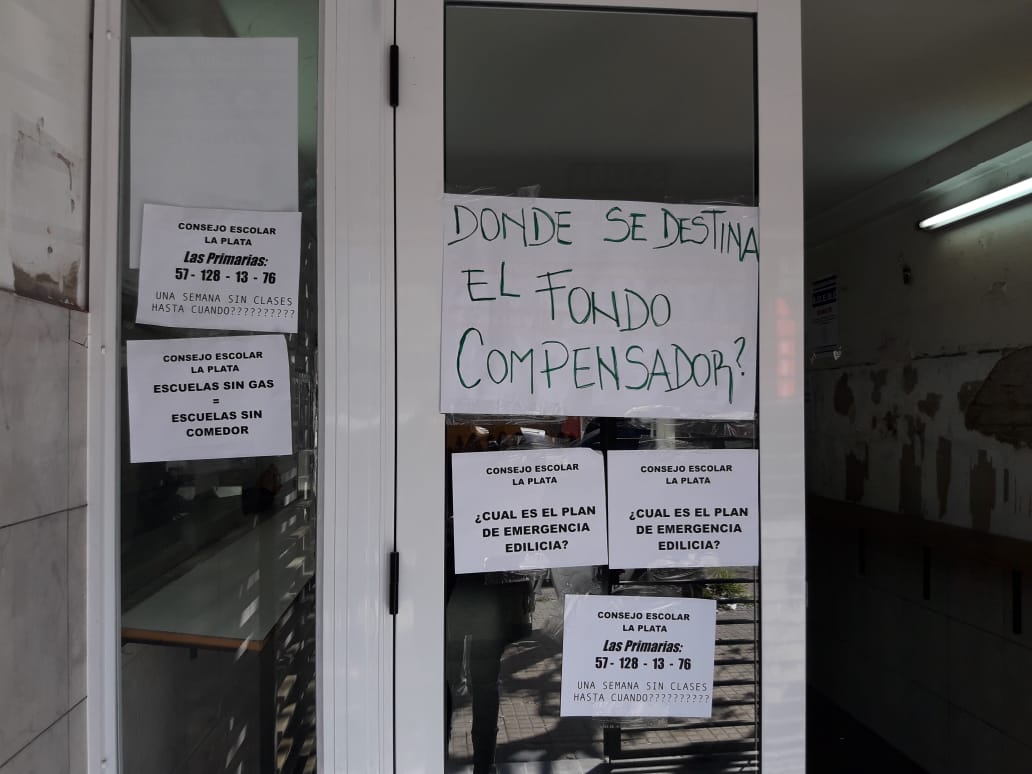 CONSEJO ESCOLAR
LA PLATA
Las Primarias:
57 - 128 - 13 - 76
UNA SEMANA SIN CLASES
HASTA CUANDO??????????
CONSEJO ESCOLAR
LA PLATA
ESCUELAS SIN GAS
=
ESCUELAS SIN
COMEDOR
DONDE SE DESTINA
EL FONDO
COMPENSADOR?
CONSEJO ESCOLAR
LA PLATA
¿CUAL ES EL PLAN
DE EMERGENCIA
EDILICIA?
CONSEJO ESCOLAR
LA PLATA
¿CUAL ES EL PLAN
DE EMERGENCIA
EDILICIA?
CONSEJO ESCOLAR
LA PLATA
Las Primarias:
57 - 128 - 13 - 76
UNA SEMANA SIN CLASES
HASTA CUANDO??????????